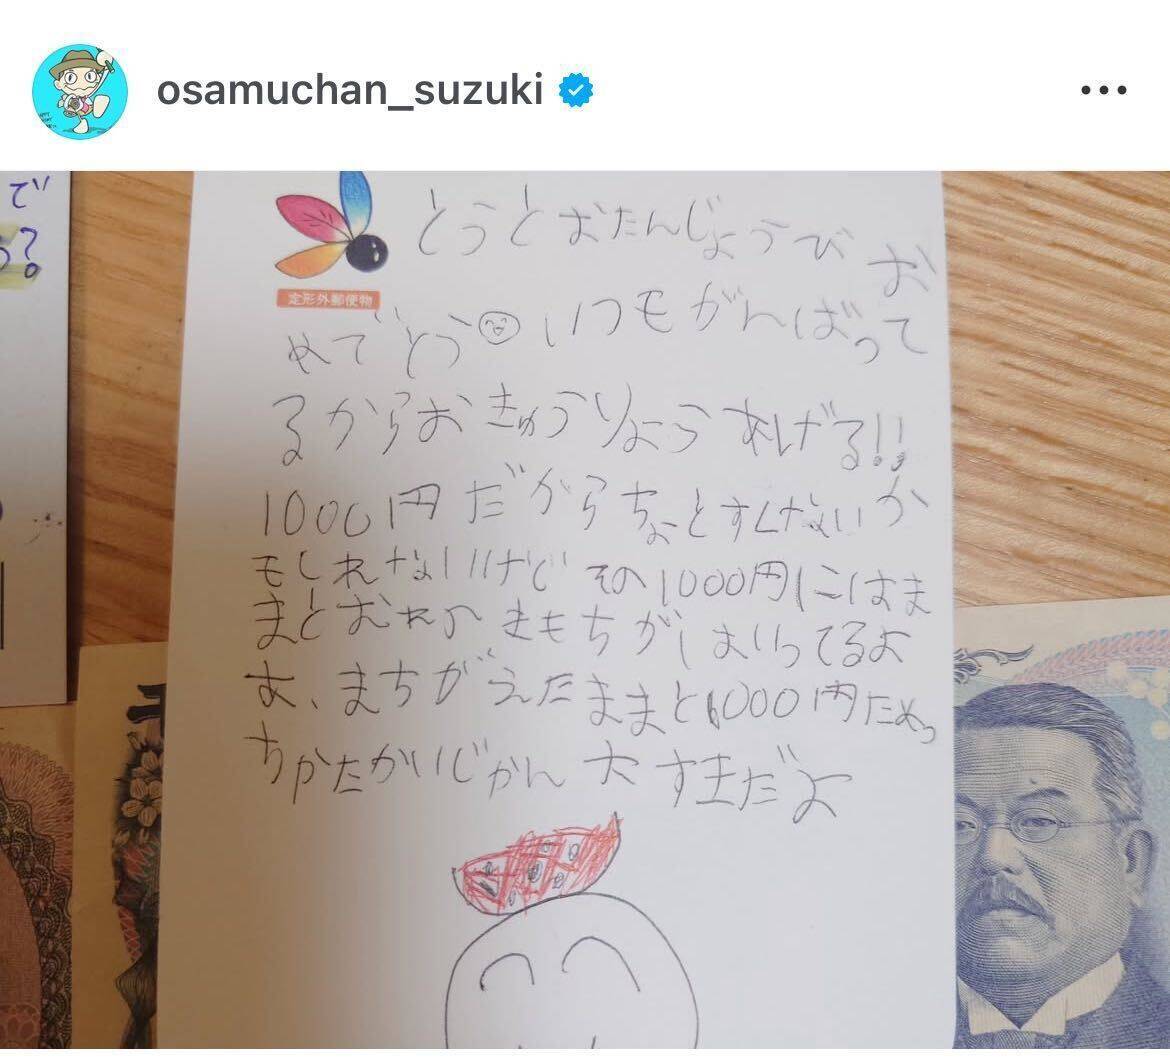 osamuchan_suzuki
で
?
定形外郵便物
とうとおたんじょうび お
めでとう いつもがんばって
るからおきゅうりょうあげる!!
1000円だからちょとすくないか
もしれないけどその1000円にはま
まとおれのきもちがはいってるよ
あ、まちがえたままと1000円ためっ
ちかたかいじかん大すきだよ